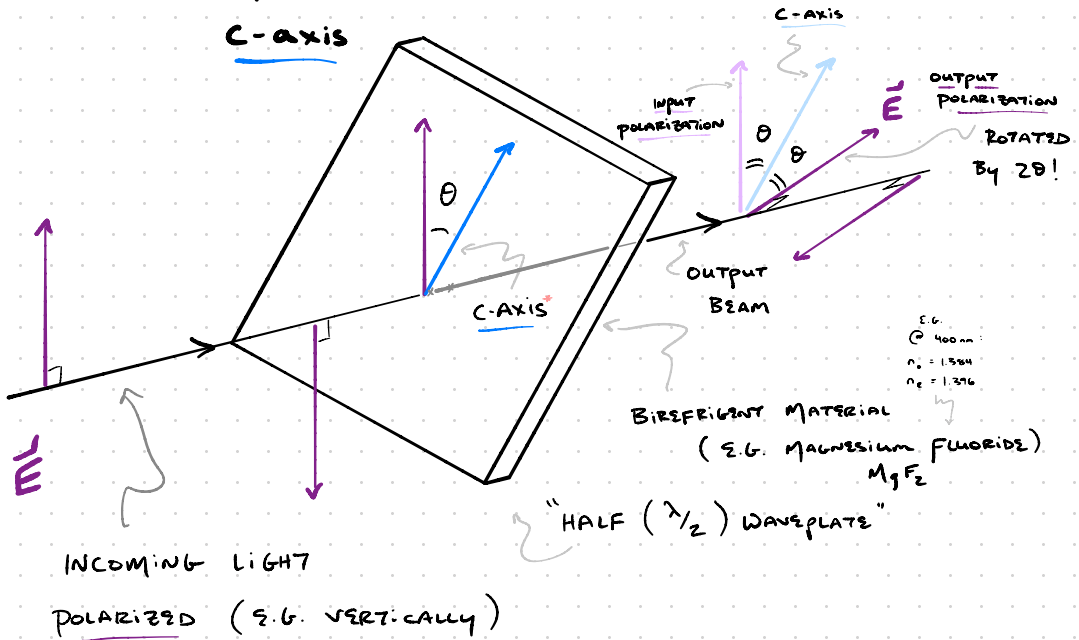 C-axis
C-AXIS
INPUT
POLARIZATION
θ
θ
E
OUTPUT
POLARIZATION
ROTATED
By 2θ!
θ
C-AXIS*
OUTPUT
BEAM
E.G.
@ 400nm:
n₀ = 1.384
nₑ = 1.396
BIREFRIGENT MATERIAL
(E.G. MAGNESIUM FLUORIDE)
MgF₂
"HALF (λ/2) WAVEPLATE"
E
INCOMING LIGHT
POLARIZED (E.G. VERTICALLY)